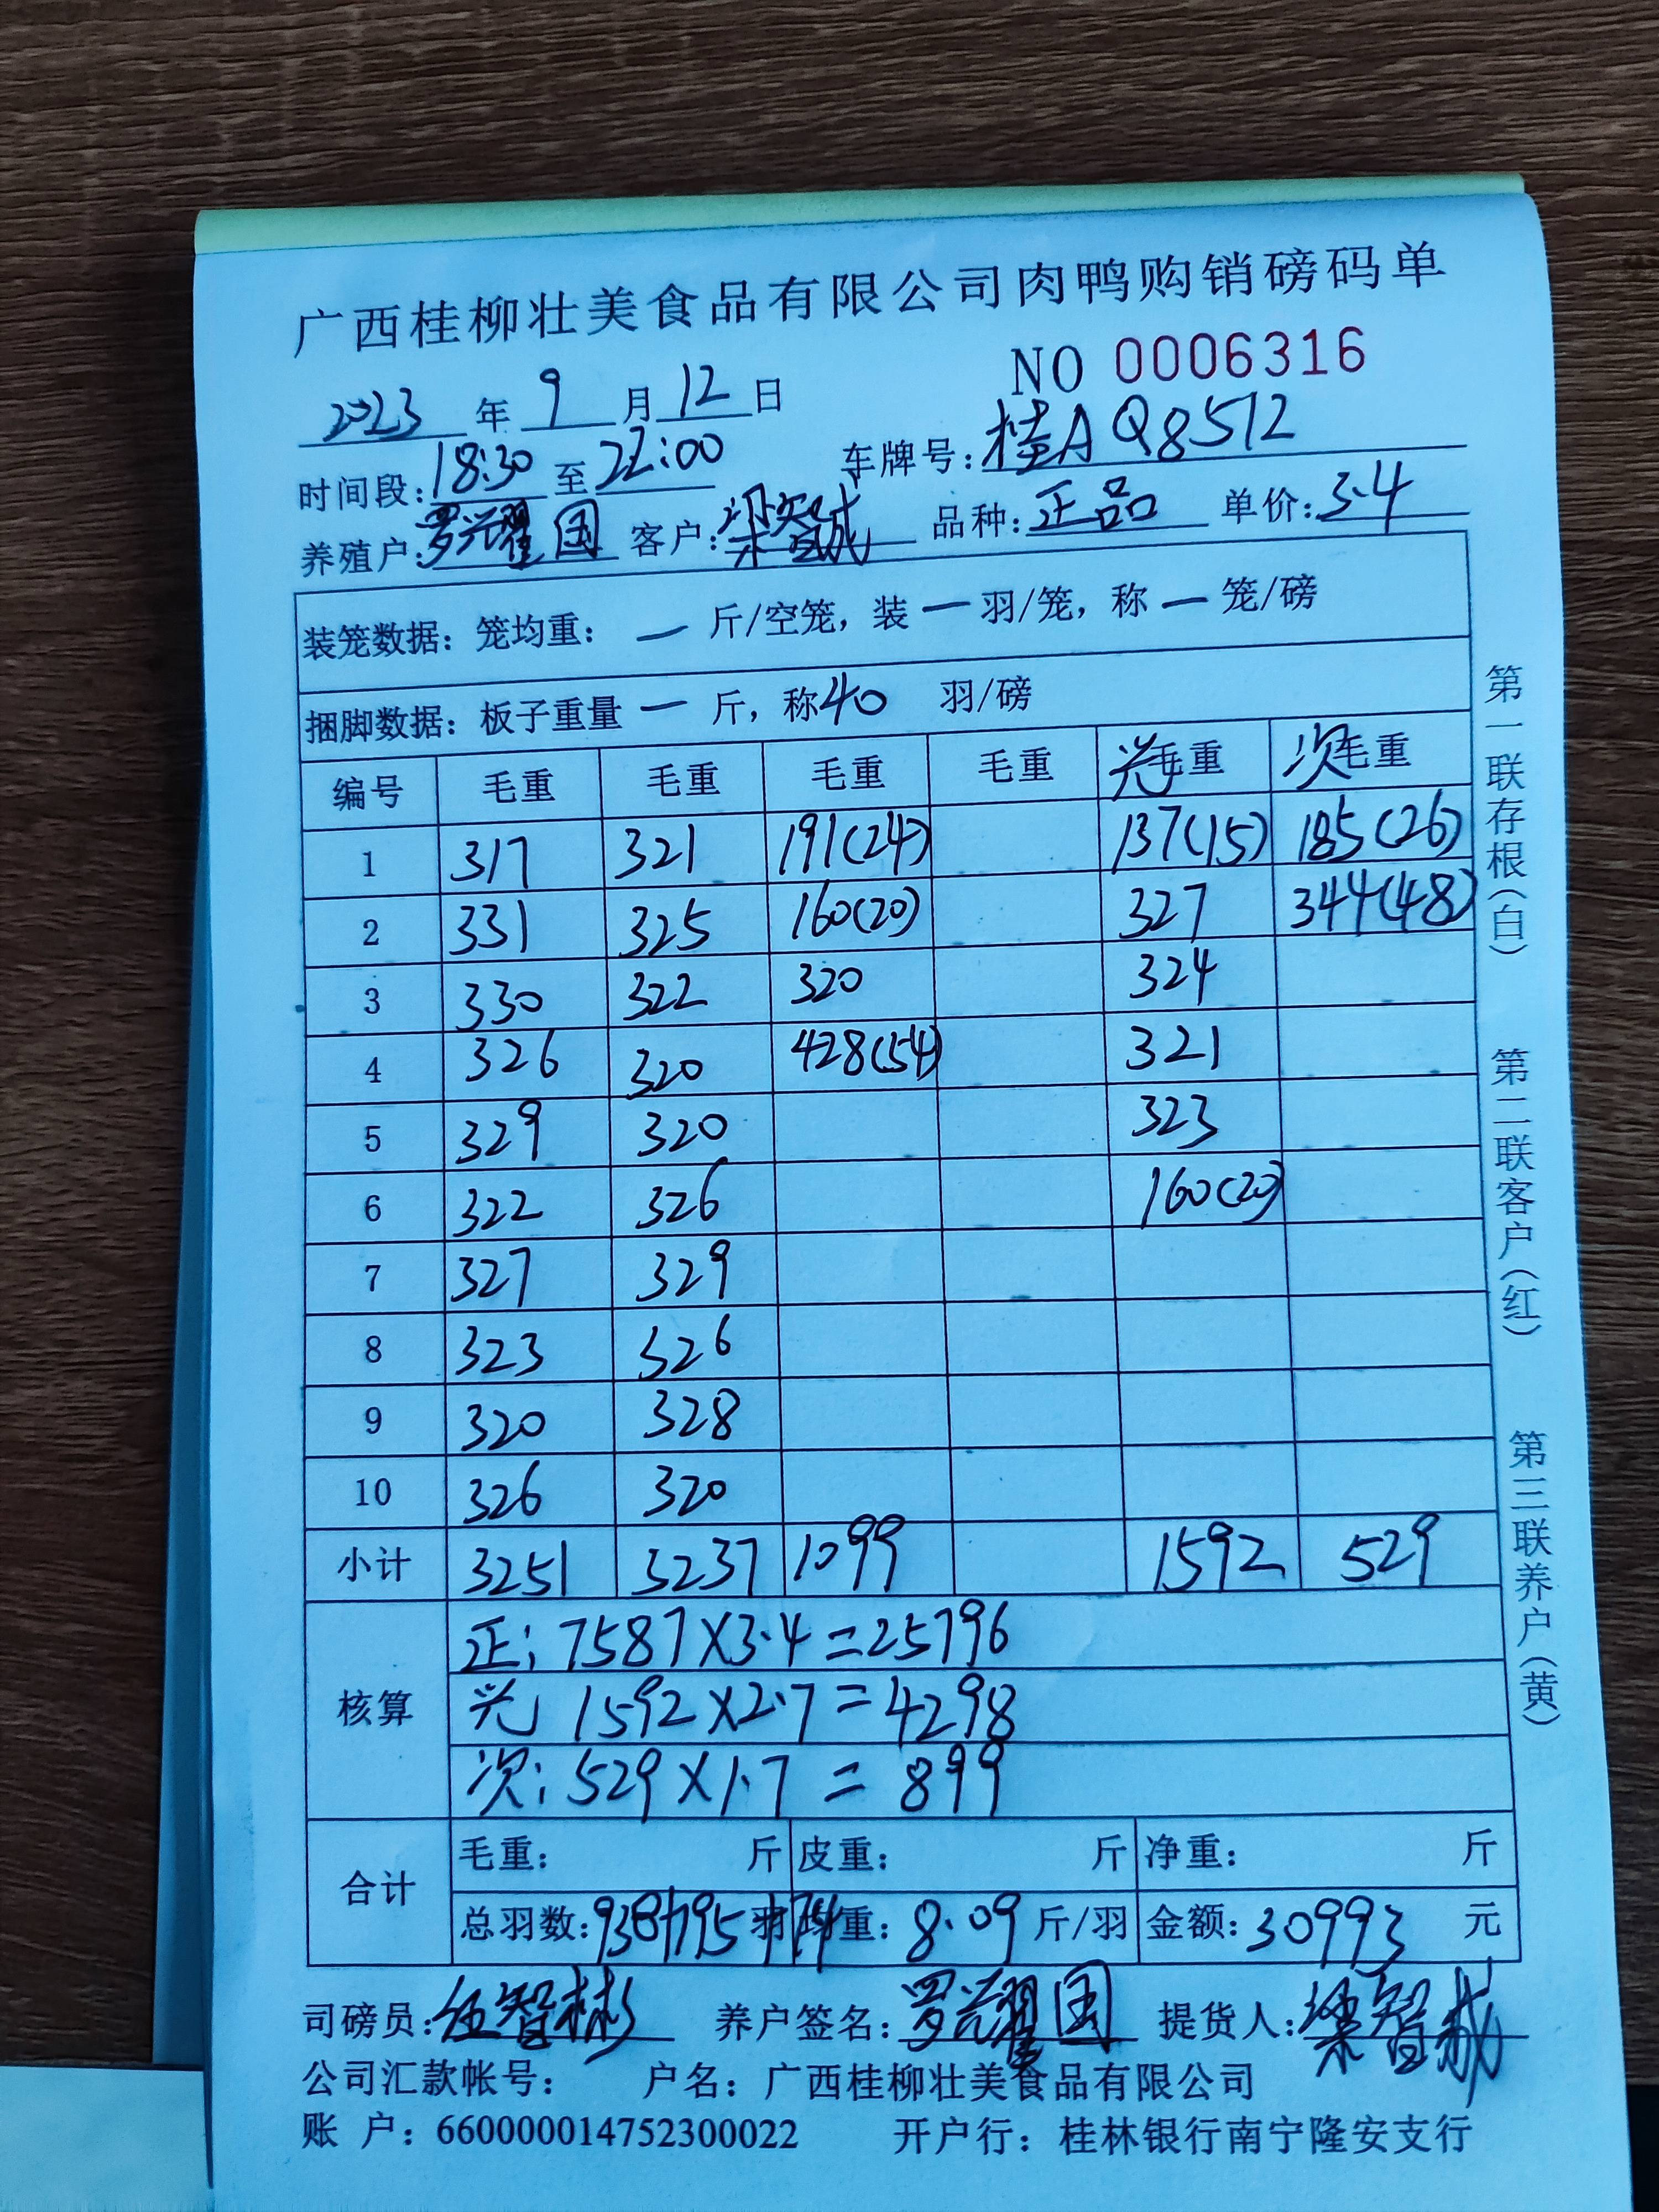 广西桂柳壮美食品有限公司肉鸭购销磅码单
NO 0006316
2023 年 9 月 12 日
时间段: 18:30 至 22:00 车牌号: 桂A Q8512
养殖户: 罗耀国 客户: 梁智诚 品种: 正品 单价: 3.4
装笼数据: 笼均重: 一 斤/空笼, 装 一 羽/笼, 称 一 笼/磅
捆脚数据: 板子重量 一 斤, 称 40 羽/磅
编号 毛重 毛重 毛重 毛重 毛重 次毛重
1 317 321 191(24) 137(15) 185(26)
2 331 325 160(20) 327 344(48)
3 330 322 320 324
4 326 320 428(54) 321
5 329 320 323
6 322 326 160(20)
7 327 329
8 323 326
9 320 328
10 326 320
小计 3251 3237 1099 1592 529
核算
正: 7587×3.4=25796
1592×2.7=4298
次: 529×1.7=899
合计
毛重: 斤 皮重: 斤 净重: 斤
总羽数: 938+195+74 羽 均重: 8.09 斤/羽 金额: 30993 元
司磅员: 伍智彬 养户签名: 罗耀国 提货人: 梁智诚
公司汇款帐号: 户名: 广西桂柳壮美食品有限公司
账 户: 660000014752300022 开户行: 桂林银行南宁隆安支行
第一联存根(白) 第二联客户(红) 第三联养户(黄)